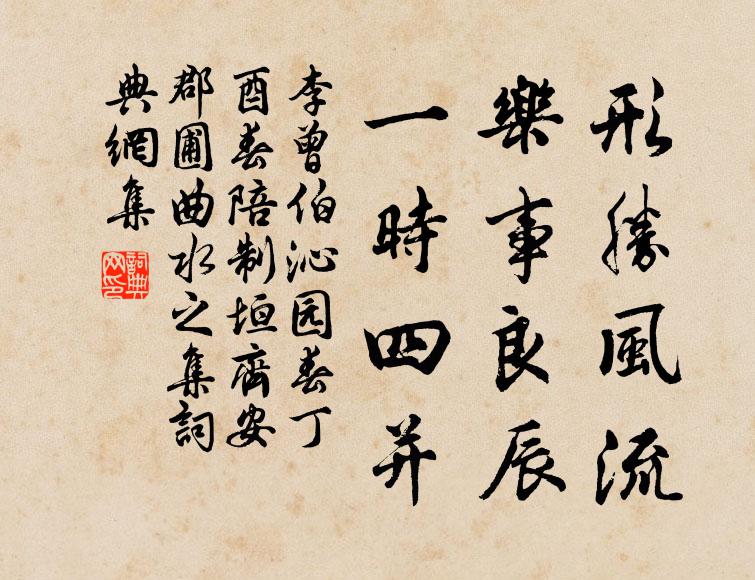 形勝風流
樂事良辰
一時四并
李曾伯沁园春丁
酉春陪制垣齊安
郡圃曲水之集詞
典網集
詞典
网印